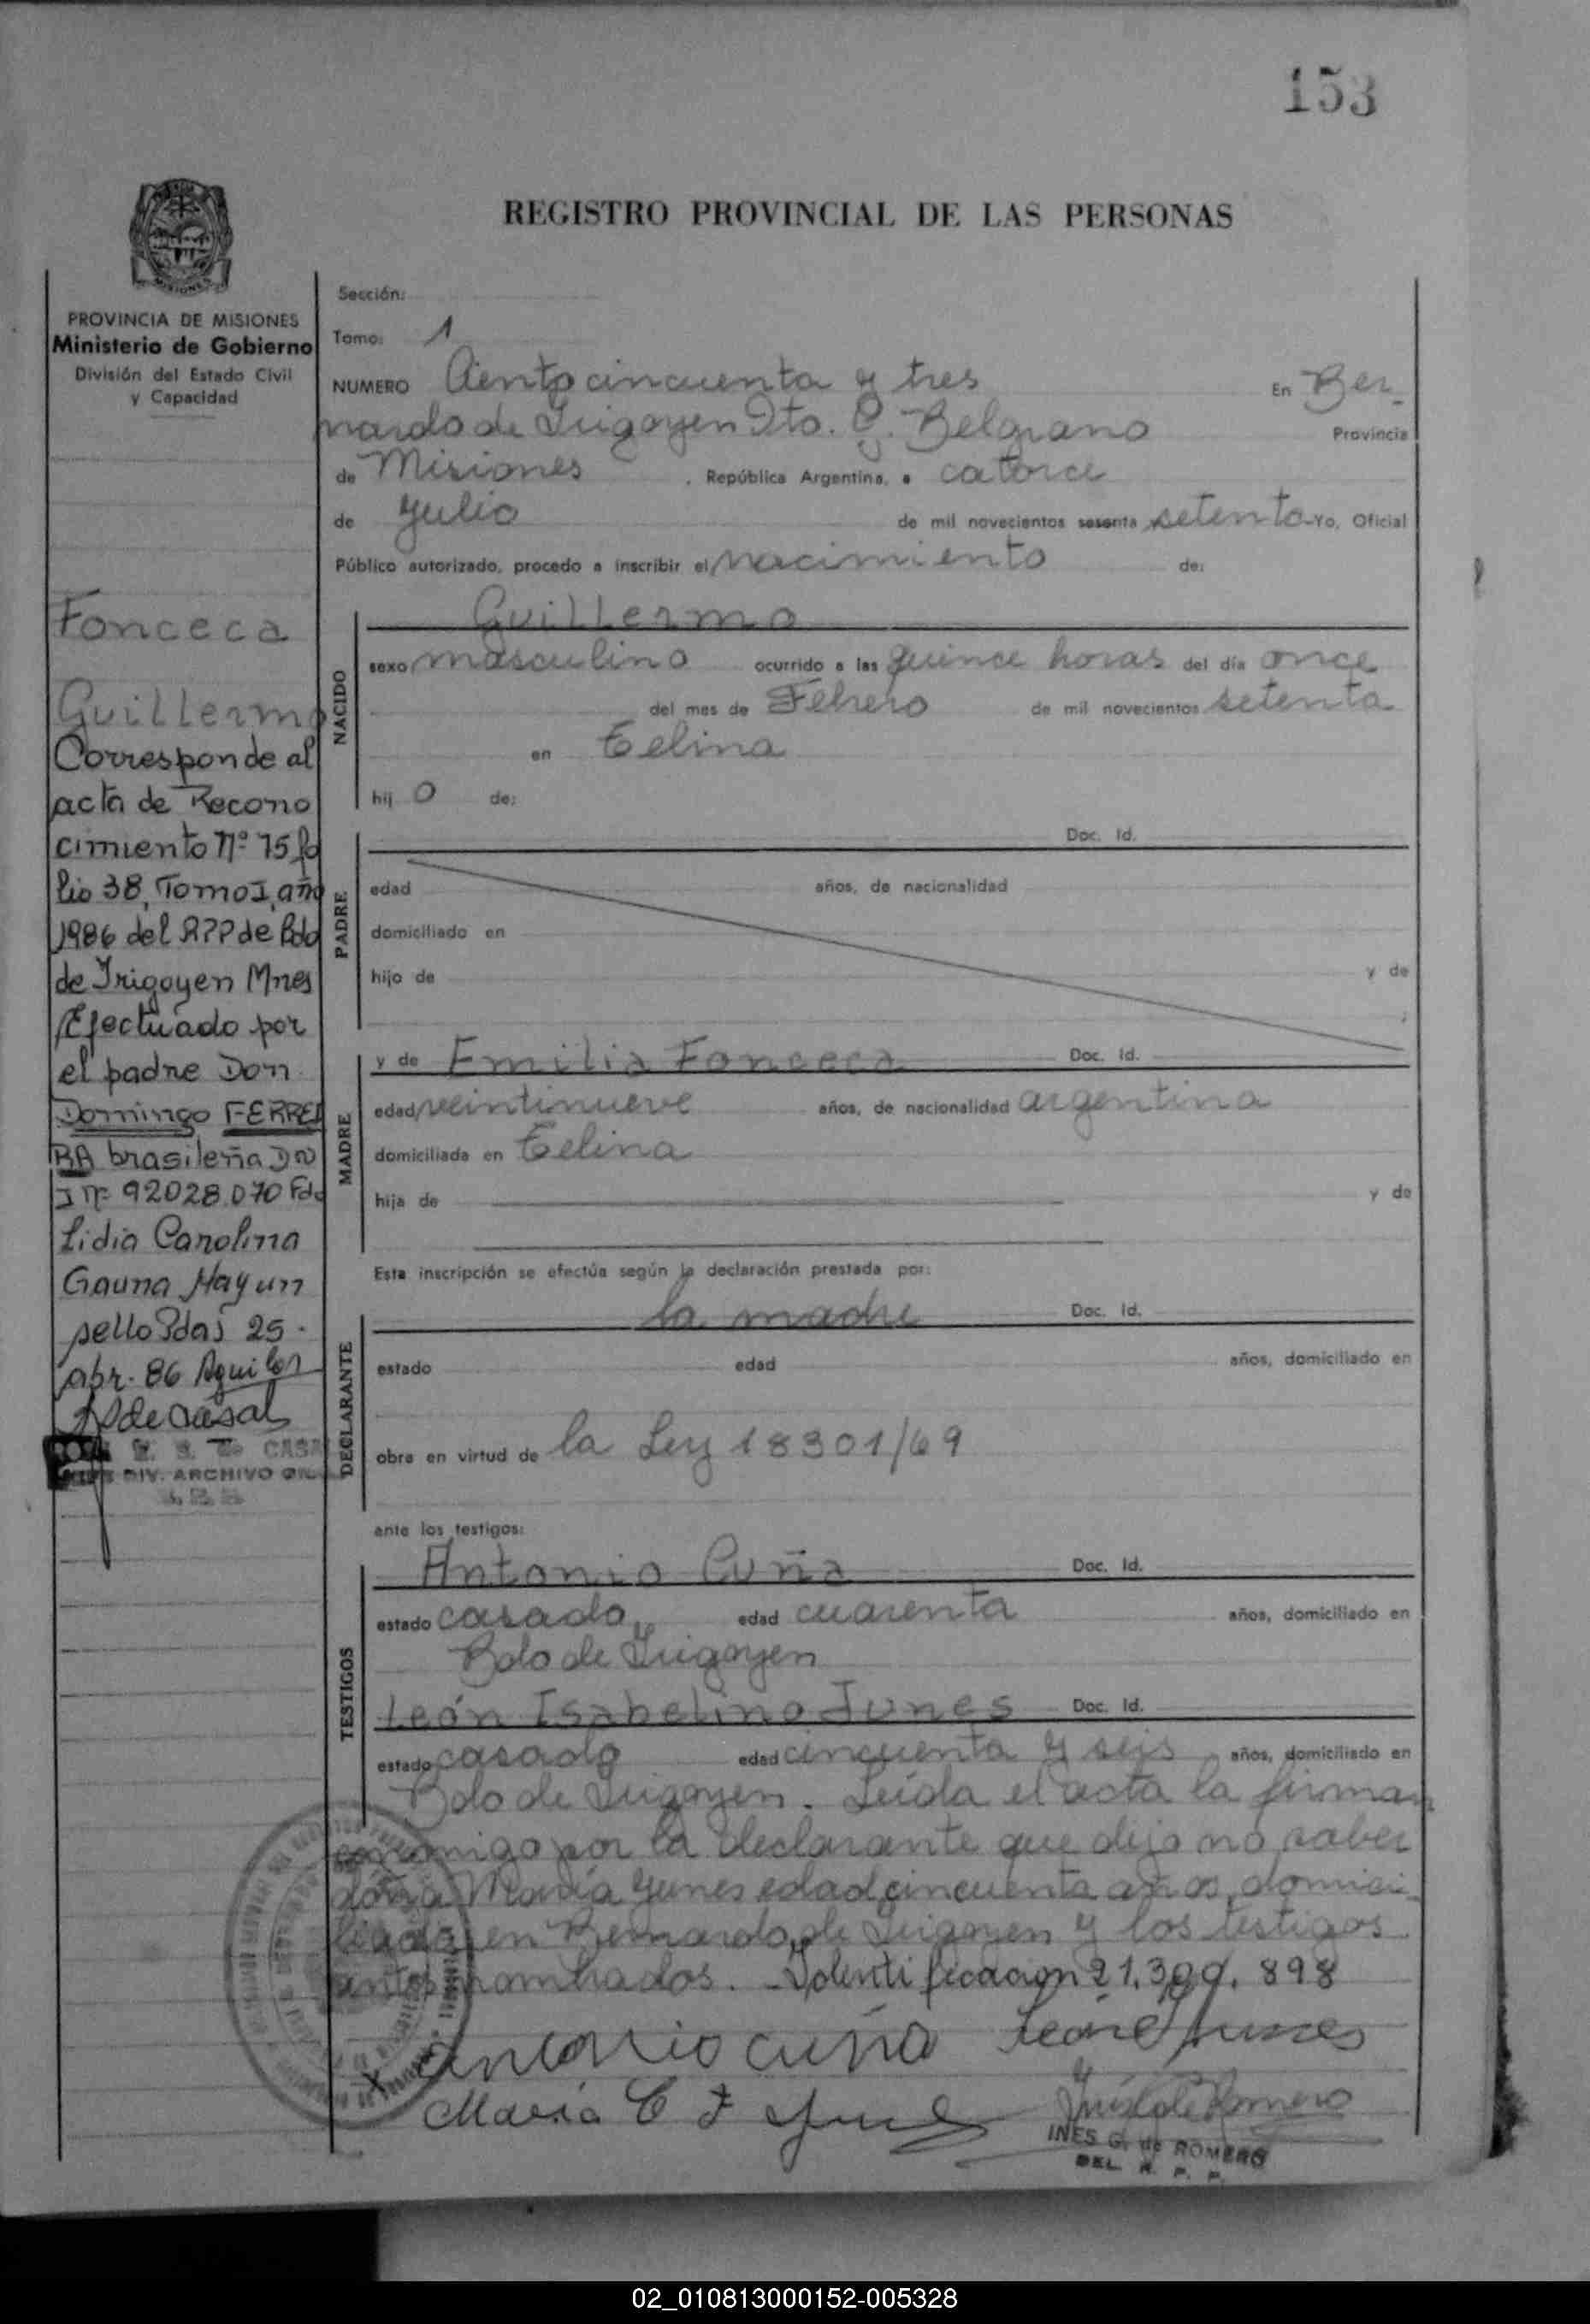 153
REGISTRO PROVINCIAL DE LAS PERSONAS
MISIONES
PROVINCIA DE MISIONES
Ministerio de Gobierno
División del Estado Civil
y Capacidad
Fonceca
Guillermo
Corresponde al
acta de Recono
cimiento Nº 75 fo
lio 38, Tomo I, año
1986 del RPP de Bdo
de Irigoyen Mnes
Efectuado por
el padre Don
Domingo FERREI
RA brasileña DN
I Nº 92028.070 Fdo
Lidia Carolina
Gauna Mayun
sello Pdas 25.
abr. 86 Aguilar
de Casal
DIV. ARCHIVO
Sección:
Tomo: 1
NUMERO Ciento cincuenta y tres En Ber
nardo de Irigoyen Dto. G. Belgrano Provincia
de Misiones , República Argentina, a catorce
de Julio de mil novecientos sesenta setenta Yo, Oficial
Público autorizado, procedo a inscribir el nacimiento de:
NACIDO
Guillermo
sexo masculino ocurrido a las quince horas del día once
del mes de Febrero de mil novecientos setenta
en Celina
hij o de:
PADRE
Doc. Id.
edad años, de nacionalidad
domiciliado en
hijo de y de
MADRE
y de Emilia Fonceca Doc. Id.
edad veintinueve años, de nacionalidad argentina
domiciliada en Celina
hija de y de
Esta inscripción se efectúa según la declaración prestada por:
DECLARANTE
la madre Doc. Id.
estado edad años, domiciliado en
obra en virtud de la Ley 18301/69
ante los testigos:
TESTIGOS
Antonio Cuña Doc. Id.
estado casado edad cuarenta años, domiciliado en
Bdo de Irigoyen
León Isabelino Junes Doc. Id.
estado casado edad cincuenta y seis años, domiciliado en
Bdo de Irigoyen. Leida el acta la firman
conmigo por la declarante que dijo no saber
doña María Yunes edad cincuenta años, domici
liada en Bernardo de Irigoyen y los testigos
antes nombrados. Identificacion 21.300.898
antonio cuña
María C F
INES G. de ROMERO
DEL. R. P. P.
02_010813000152-005328